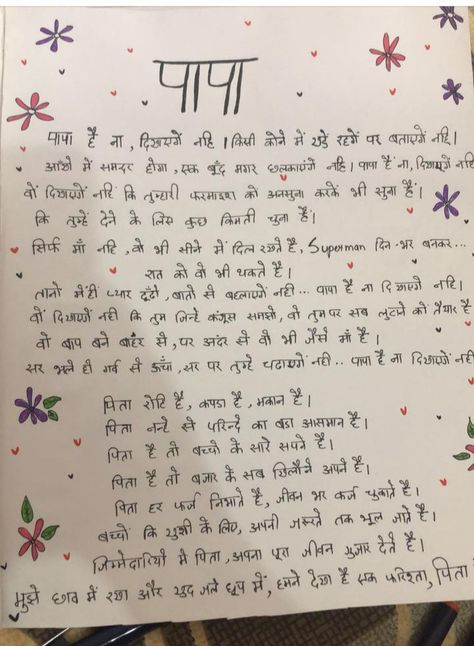 पापा
पापा है ना, दिखाएगें नहि । किसी कोने में खडें रहेगें पर बताएगें नहि ।
आँखो में समदर होगा, एक बुँद मगर छलकाएंगे नहि । पापा है ना, दिखाएगें नहि
वों दिखाएगें नहिं कि तुम्हारी फरमाइश को अनसुना करकें भी सुना हैं।
कि तुम्हें देने के लिए कुछ किमती चुना हैं।
सिर्फ माँ नहि, वो भी सीने में दिल रखते है, Superman दिन-भर बनकर...
रात को वो भी थकते है ।
तानो में ही प्यार ढुँढों, बातो से बहलाएगें नही... पापा है ना दिखाएगें नहि ।
वों दिखाएगें नही कि तुम जिन्हें कंजूस समझो, वों तुम पर सब लुटाने को तैयार है
वो बाप बने बाहर से, पर अदर से वो भी जैसें माँ है ।
सर भले ही गर्व से ऊँचा, सर पर तुम्हे चढाएगें नही.. पापा है ना दिखाएगें नही
पिता रोटि है, कपडा है, मकान है ।
पिता नन्हे से परिन्दे का बडा आसमान है ।
पिता है तो बच्चो के सारे सपने है ।
पिता है तो बजार कें सब खिलौने अपने है ।
पिता हर फर्ज निभाते है, जीवन भर कर्ज चुकाते है ।
बच्चों कि खुशी के लिए, अपनी जरूरते तक भूल जाते है ।
जिम्मेदारियों मे पिता, अपना पूरा जीवन गुजार देते है ।
मुझे छाव में रखा और खुद जले धूप में, हमने देखा है एक फरिश्ता, पिता